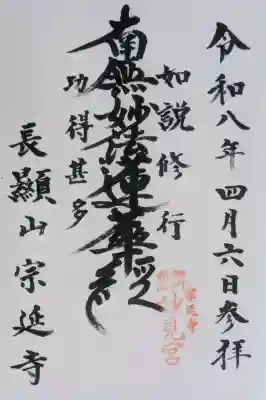 令和八年四月六日参拝
如説修行
南無妙法蓮華経
功得甚多
長顯山宗延寺
宗延寺
妙見宮